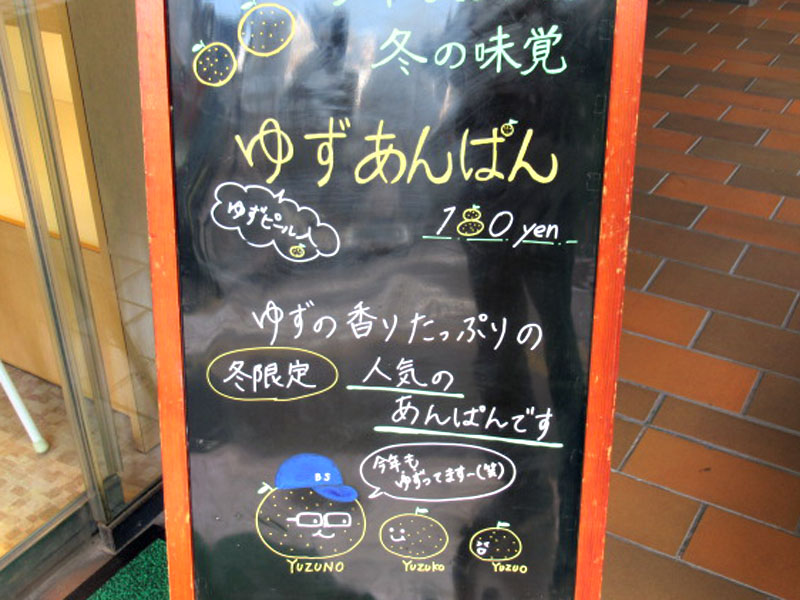 冬の味覚
ゆずあんぱん
ゆずピール入
180 yen
ゆずの香りたっぷりの
冬限定
人気の
あんぱんです
今年も
ゆずってますー(笑)
BS
YUZUNO
YUZUKO
YUZUO